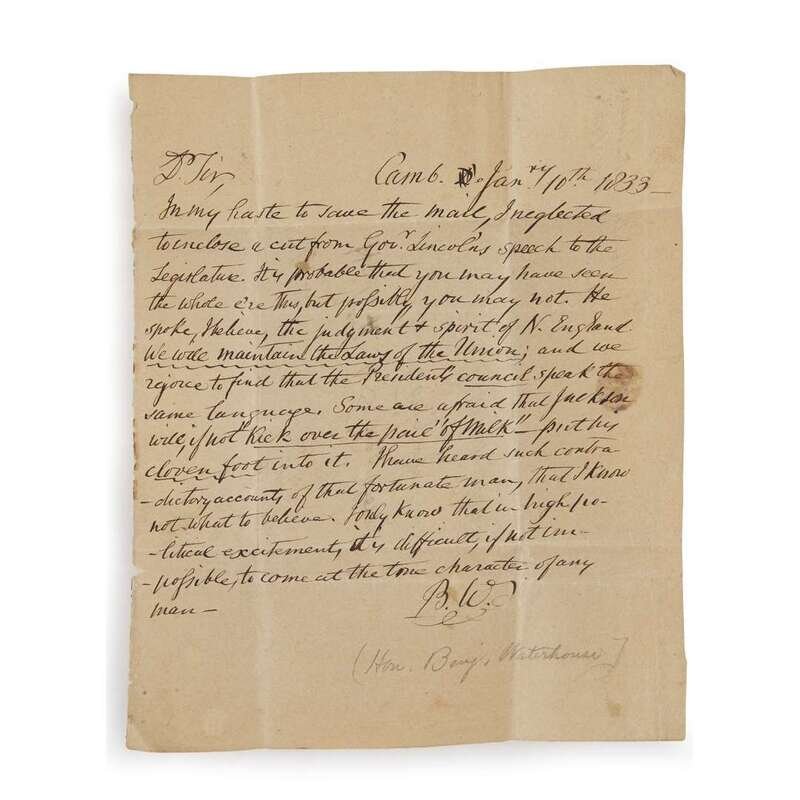 Dr Sir, Camb. Janry 10th 1833 —
In my haste to save the mail, I neglected
to inclose a cut from Govr. Lincoln's speech to the
Legislature. It is probable that you may have seen
the whole e're this, but possibly you may not. He
spoke, I believe, the judgment & spirit of N. England.
We will maintain the Laws of the Union; and we
rejoice to find that the President's council speak the
same language. Some are afraid that Jackson
will, if not "Kick over the pail of Milk" — put his
cloven foot into it. I have heard such contra
-dictory accounts of that fortunate man, that I know
not what to believe. I only know that in high po-
-litical excitement, it is difficult, if not im-
-possible, to come at the true character of any
man —
B. W.
(Hon. Benj. Waterhouse)